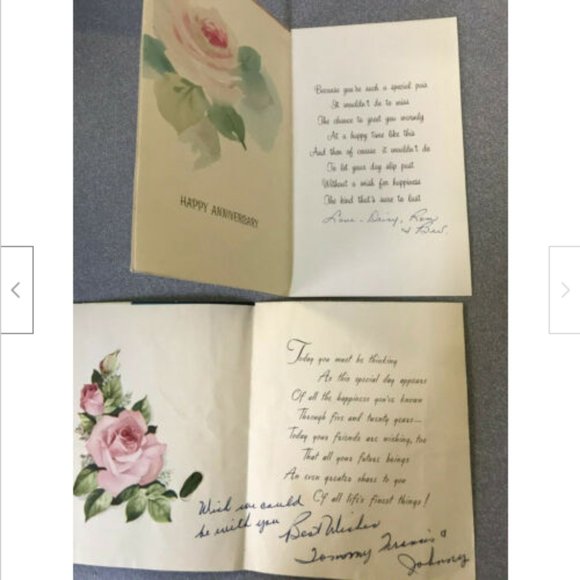 HAPPY ANNIVERSARY
Because you're such a special pair
It wouldn't do to miss
The chance to greet you warmly
At a happy time like this
And then of course it wouldn't do
To let your day slip past
Without a wish for happiness
The kind that's sure to last
Love - Daisy, Roy
+ Bev
Today you must be thinking
As this special day appears
Of all the happiness you've known
Through five and twenty years—
Today your friends are wishing, too
That all your future brings
An even greater share to you
Of all life's finest things!
Wish we could
be with you
Best Wishes
Tommy
Johnny